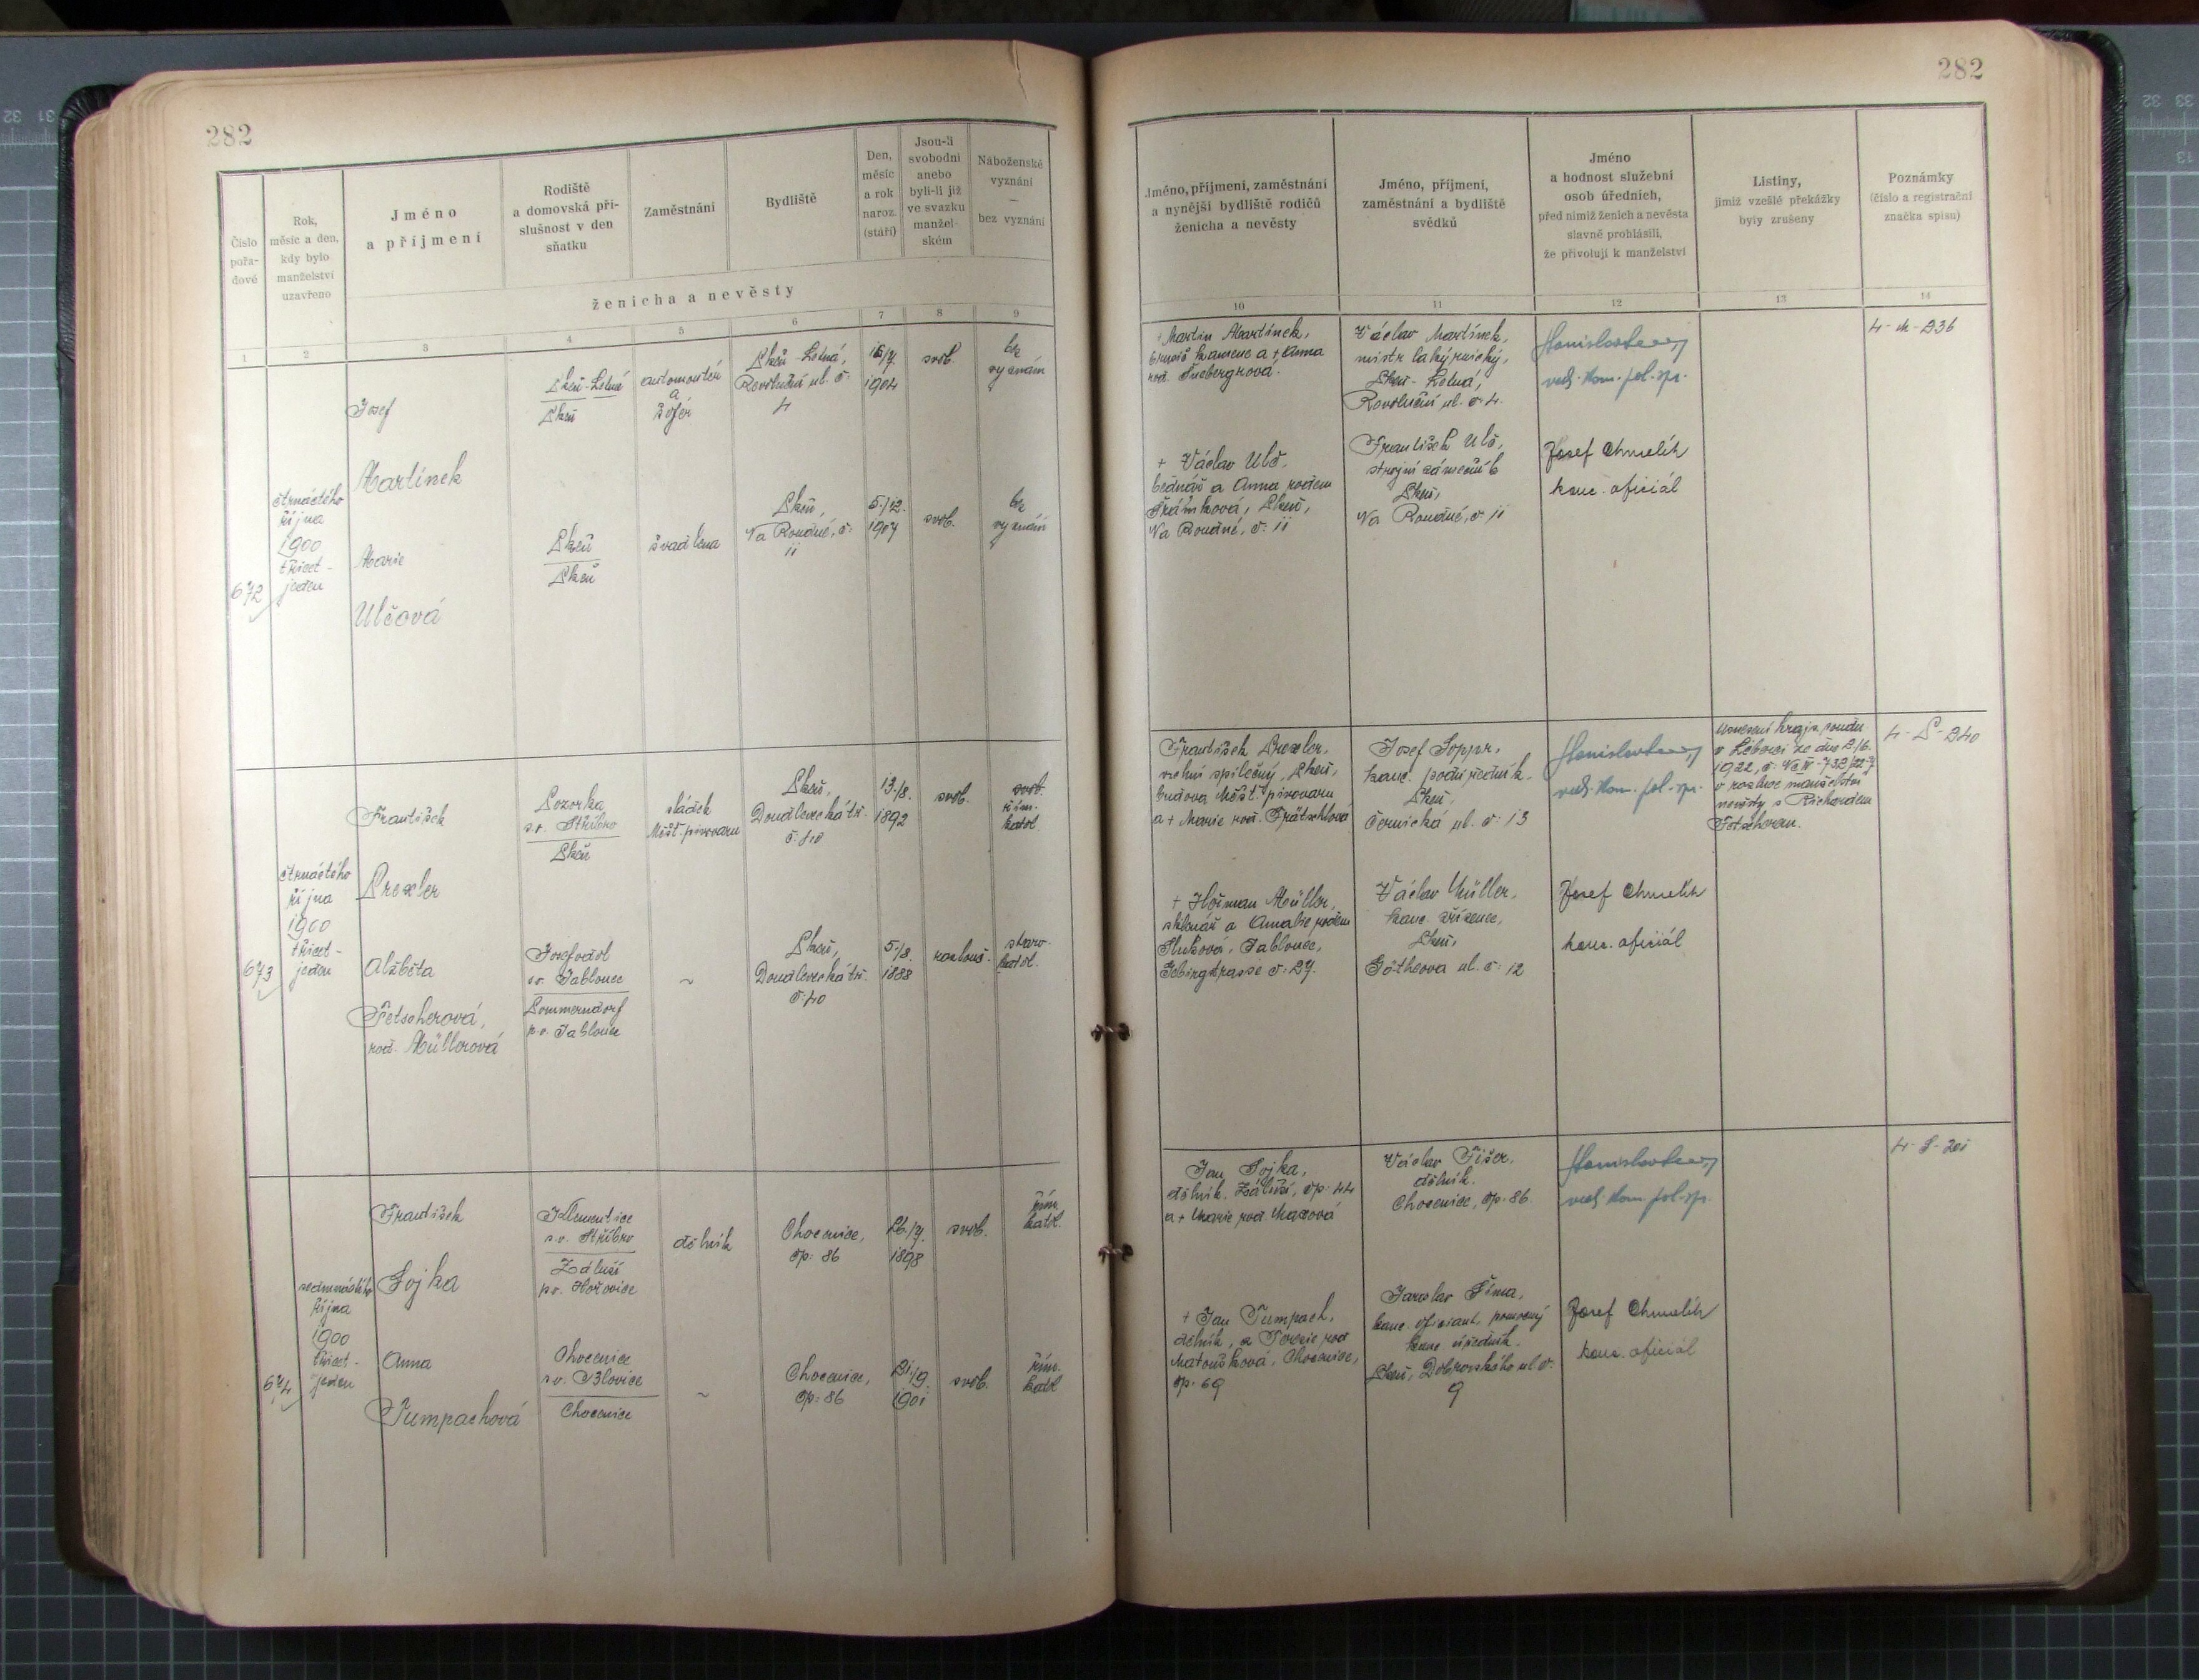 282
Číslo
pořa-
dové
Rok,
měsíc a den,
kdy bylo
manželství
uzavřeno
Jméno
a příjmení
Rodiště
a domovská pří-
slušnost v den
sňatku
Zaměstnání
Bydliště
Den,
měsíc
a rok
naroz.
(stáří)
Jsou-li
svobodni
anebo
byli-li již
ve svazku
manžel-
ském
Náboženské
vyznání
—
bez vyznání
ženicha a nevěsty
1
2
3
4
5
6
7
8
9
672
čtrnáctého
října
1900
třicet-
jeden
Josef
Martínek
Plzeň-Letná
Plzeň
automontér
a
šofér
Plzeň-Letná,
Revoluční ul. č.
4
16/7
1904
svob.
bez
vyznání
Marie
Ulčová
Plzeň
Plzeň
švadlena
Plzeň,
Na Roudné, č.
11
5./12.
1907
svob.
bez
vyznání
673
čtrnáctého
října
1900
třicet-
jeden
František
Prexler
Lozorka
s.o. Stříbro
Plzeň
sládek
Měšť. pivovaru
Plzeň,
Doudlevecká tř.
č. 40
13./8.
1892
svob.
svob.
řím.
katol.
Alžběta
Fetscherová,
roz. Müllerová
Josefodol
s.o. Jablonec
Pommerndorf
p.o. Jablonec
~
Plzeň,
Doudlevecká tř.
č. 40
5./8.
1888
rozlouč.
staro-
katol.
674
sedmnáctého
října
1900
třicet-
jeden
František
Sojka
Klementice
s.o. Stříbro
Záluží
p.o. Hořovice
dělník
Chocenice,
čp. 86
26./7.
1898
svob.
řím.
katol.
Anna
Tumpachová
Chocenice
s.o. Blovice
Chocenice
~
Chocenice,
čp. 86
21./9.
1901
svob.
řím.
katol.
282
Jméno, příjmení, zaměstnání
a nynější bydliště rodičů
ženicha a nevěsty
Jméno, příjmení,
zaměstnání a bydliště
svědků
Jméno
a hodnost služební
osob úředních,
před nimiž ženich a nevěsta
slavně prohlásili,
že přivolují k manželství
Listiny,
jimiž vzešlé překážky
byly zrušeny
Poznámky
(číslo a registrační
značka spisu)
10
11
12
13
14
+ Martin Martínek,
brusič kamene a + Anna
roz. Šnebergrova.
Václav Martínek,
mistr lakýrnický,
Plzeň-Letná,
Revoluční ul. č. 4.
vrch. kom. pol. spr.
4-M-236
+ Václav Ulč,
bednář a Anna rodem
Šrámková, Plzeň,
Na Roudné, č. 11
František Ulč,
strojní zámečník
Plzeň,
Na Roudné, č. 11
Josef Chmelík
kanc. oficiál
František Prexler,
vrchní spilečný, Plzeň,
budova Měšť. pivovaru
a + Marie roz. Frätschlová
Josef Soppr,
kanc. podúředník,
Plzeň,
Černická ul. č. 13
vrch. kom. pol. spr.
Usnesení krajs. soudu
v Liberci ze dne 2/6.
1922, č.
o rozluce manželství
nevěsty s Richardem
Fetscherem.
4-P-240
+ Heřman Müller,
sklenář a Amalie rodem
Jablonec,
Gebirgstrasse č. 27.
Václav Müller,
kanc. zřízenec,
Plzeň,
Götheova ul. č. 12
Josef Chmelík
kanc. oficiál
Jan Sojka,
dělník, Záluží, čp. 44
a + Marie roz. Maxová
Václav Fišer,
dělník.
Chocenice, čp. 86.
vrch. kom. pol. spr.
4-S-201
+ Jan Tumpach,
dělník, a Terezie roz.
Matoušková, Chocenice,
čp. 69
Jaroslav Šíma,
kanc. oficiant, pomocný
kanc. úředník.
Plzeň, Dobrovského ul. č.
9
Josef Chmelík
kanc. oficiál